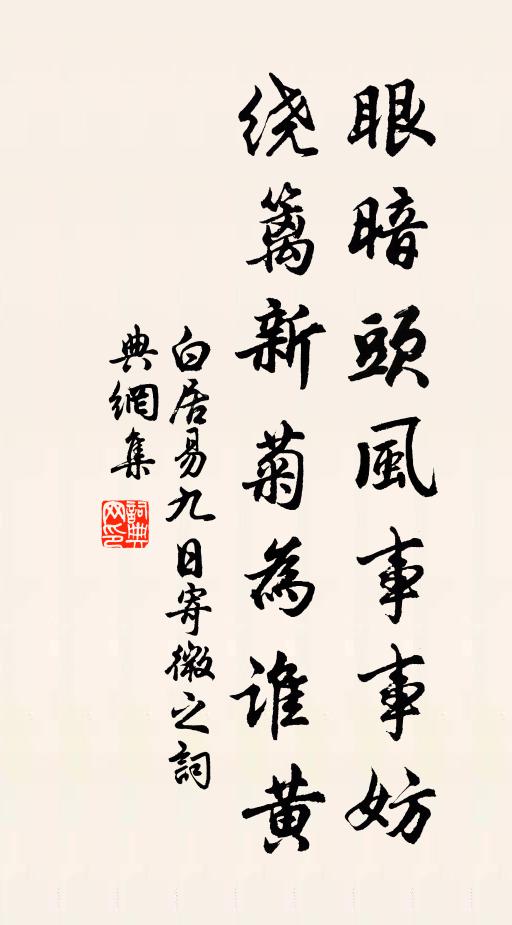 眼暗頭風事事妨
绕籬新菊為誰黄
白居易九日寄微之詞
典網集
詞典网印